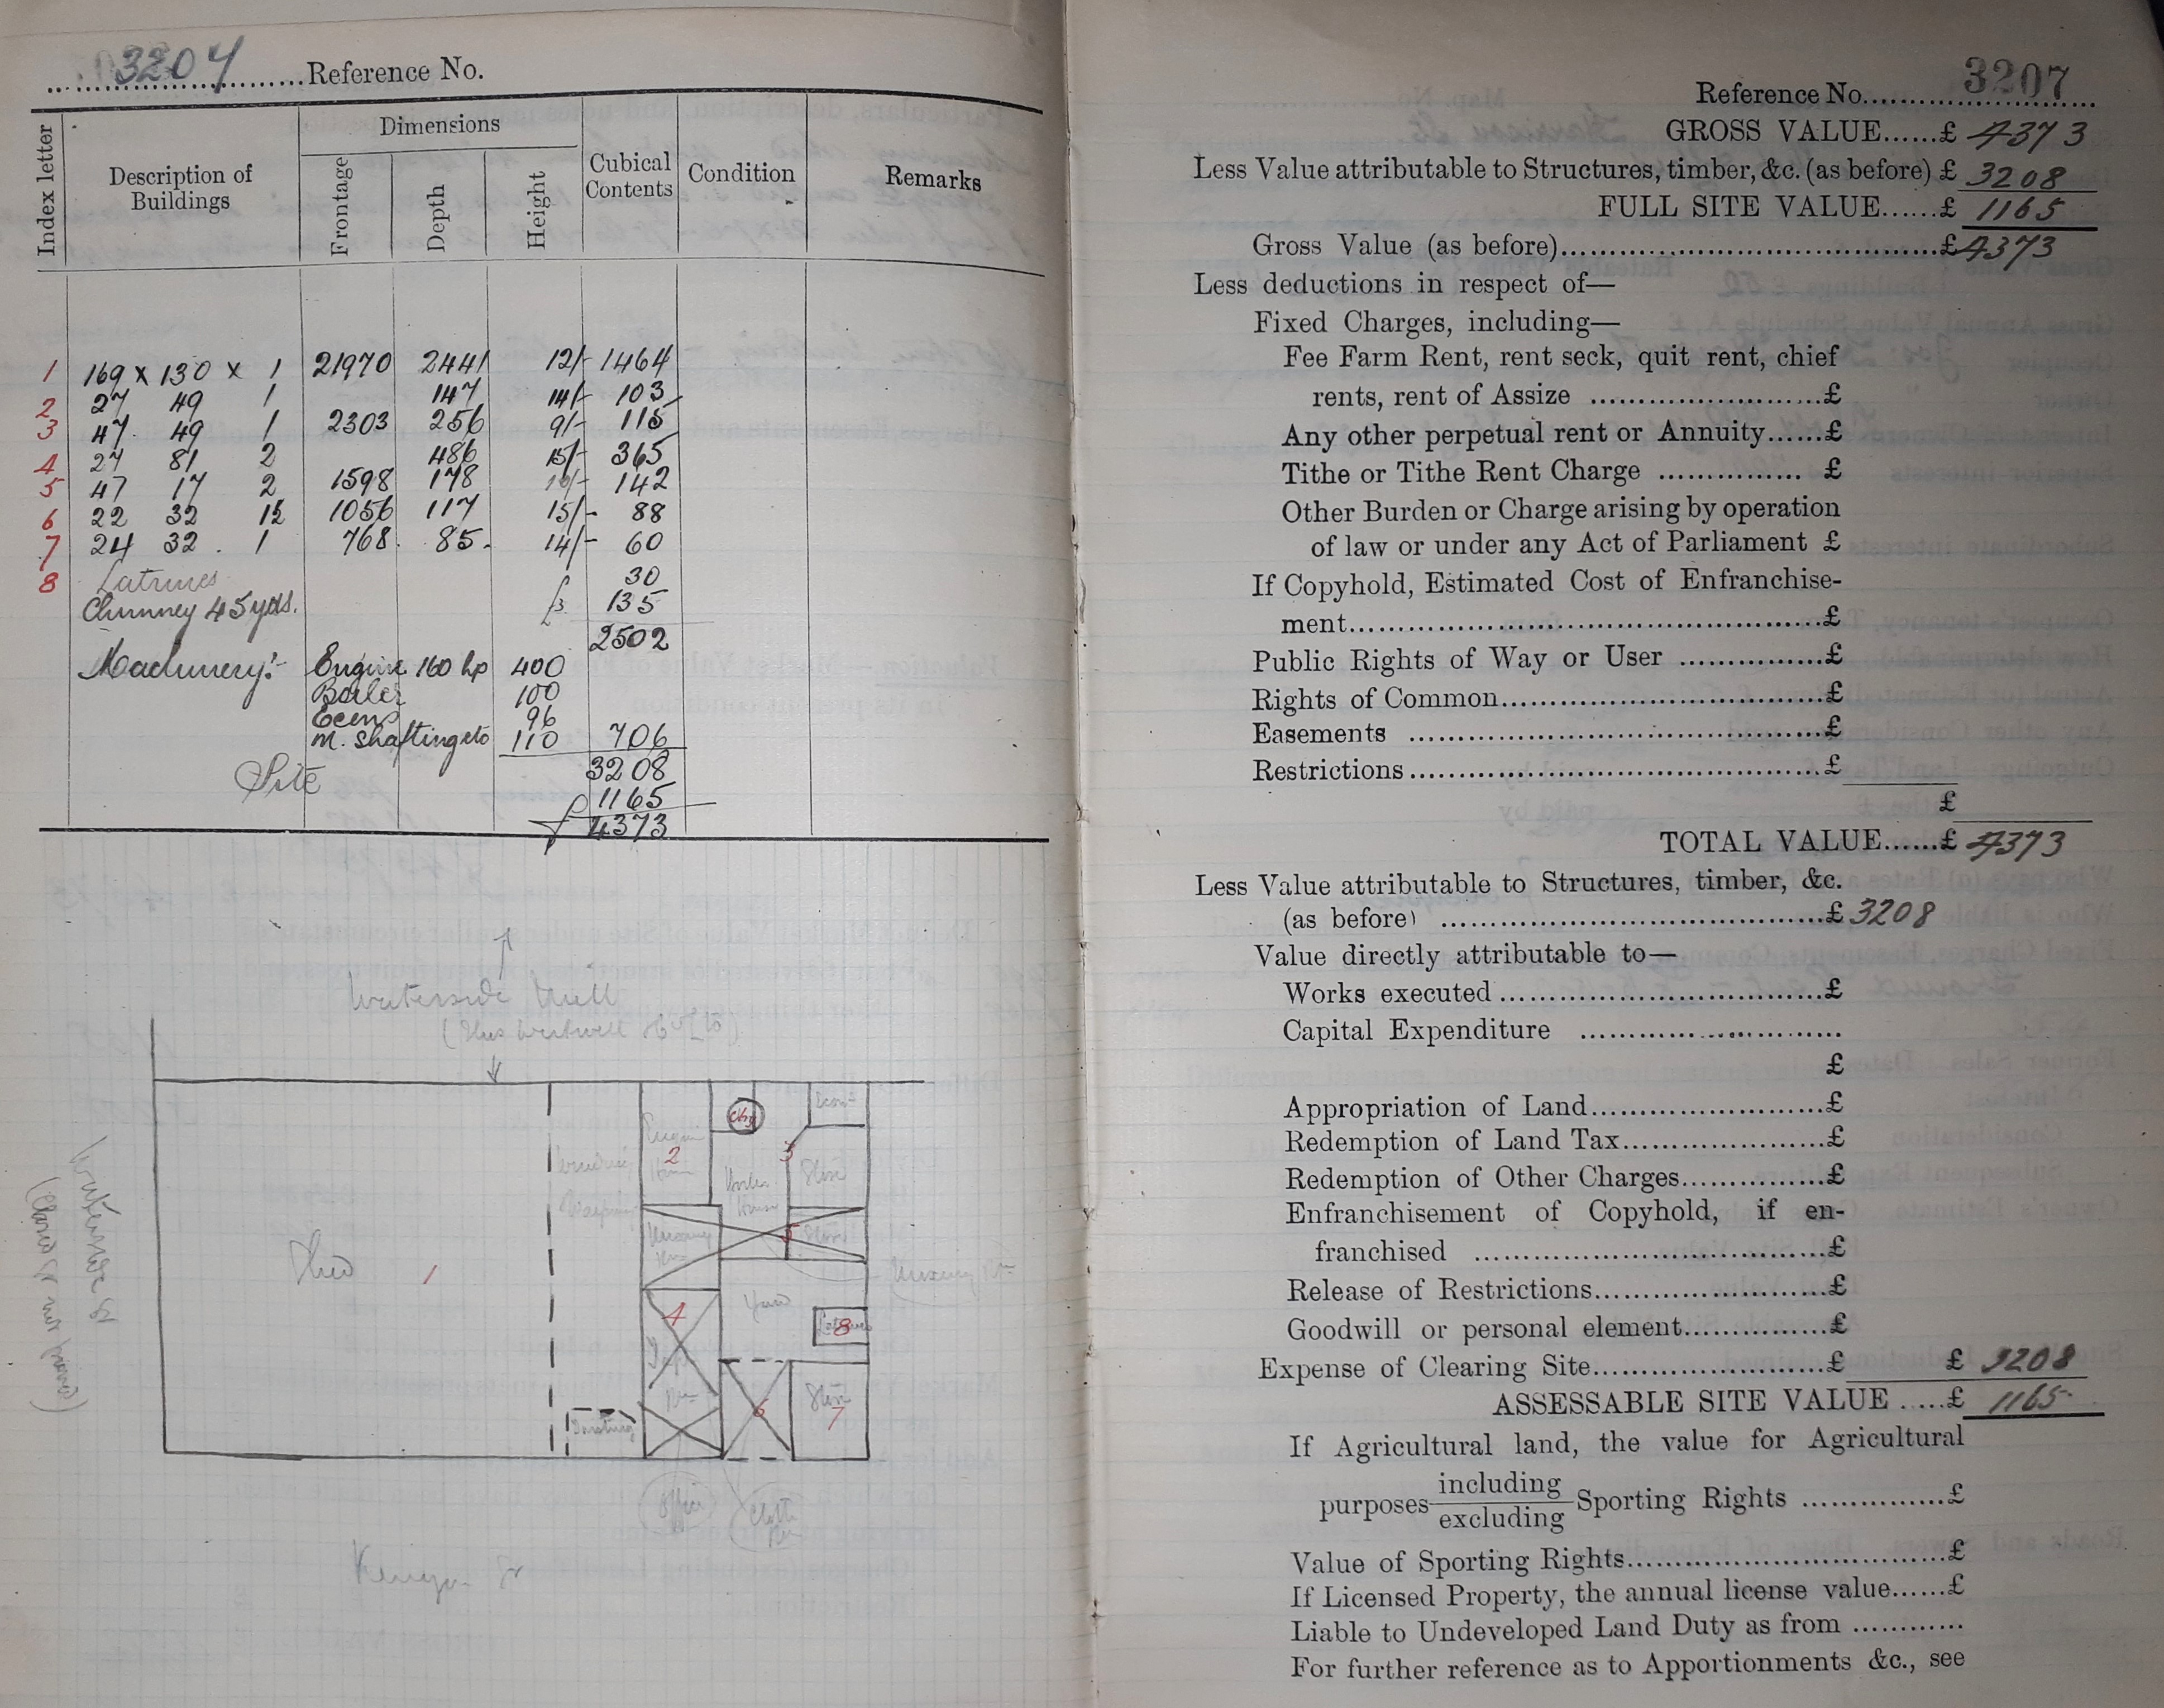 3207 Reference No.
Index letter
Description of Buildings
Dimensions
Frontage
Depth
Height
Cubical Contents
Condition
Remarks
1 169 x 130 x 1 21970 2441 12/- 1464
2 27 49 1 147 14/- 103
3 47 49 1 2303 256 9/- 115
4 27 81 2 486 15/- 365
5 47 17 2 1598 178 142
6 22 32 1½ 1056 117 15/- 88
7 24 32 1 768 85 14/- 60
8 Latrines 30
Chimney 45 yds. £3 135
2502
Machinery:- Engine 160 hp 400
Boiler 100
Econs 96
M. Shafting etc 110 706
3208
Site 1165
£ 4373
Waterside Mill
Waterside St
Shed 1
Engine House 2
Chy
Econr
3
Boiler House
Store
5
Store
4
Yard
Latrines 8
6
Store 7
Office
Cloth
Kenyon St
Reference No. 3207
GROSS VALUE......£ 4373
Less Value attributable to Structures, timber, &c. (as before) £ 3208
FULL SITE VALUE......£ 1165
Gross Value (as before)......£ 4373
Less deductions in respect of—
Fixed Charges, including—
Fee Farm Rent, rent seck, quit rent, chief
rents, rent of Assize ......£
Any other perpetual rent or Annuity......£
Tithe or Tithe Rent Charge ......£
Other Burden or Charge arising by operation
of law or under any Act of Parliament £
If Copyhold, Estimated Cost of Enfranchise-
ment......£
Public Rights of Way or User ......£
Rights of Common......£
Easements ......£
Restrictions......£
£
TOTAL VALUE......£ 4373
Less Value attributable to Structures, timber, &c.
(as before) ......£ 3208
Value directly attributable to—
Works executed ......£
Capital Expenditure ......
£
Appropriation of Land......£
Redemption of Land Tax......£
Redemption of Other Charges......£
Enfranchisement of Copyhold, if en-
franchised ......£
Release of Restrictions......£
Goodwill or personal element......£
Expense of Clearing Site......£ £ 3208
ASSESSABLE SITE VALUE .....£ 1165
If Agricultural land, the value for Agricultural
purposes including excluding Sporting Rights ......£
Value of Sporting Rights......£
If Licensed Property, the annual license value......£
Liable to Undeveloped Land Duty as from ............
For further reference as to Apportionments &c., see